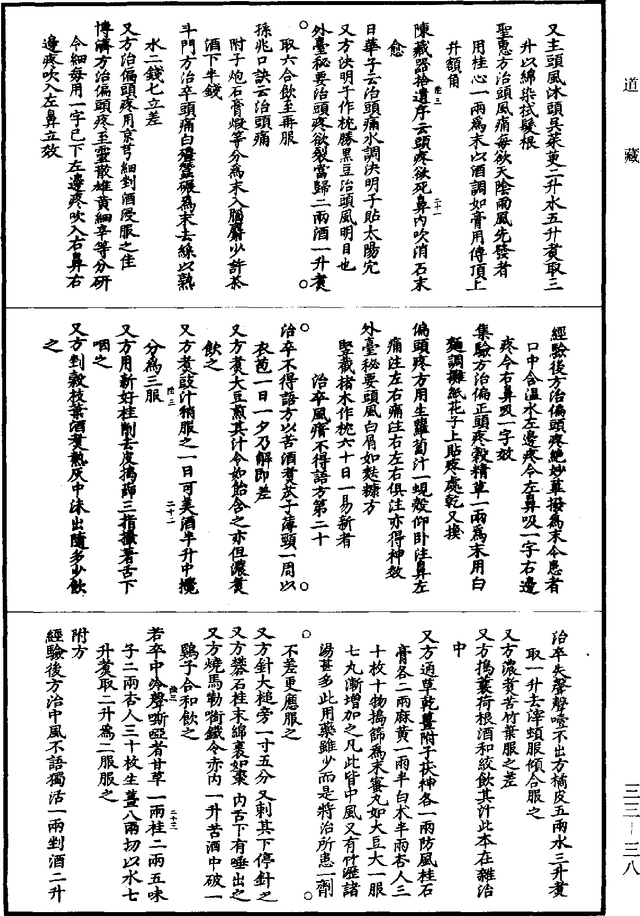 道藏
又主頭風沐頭吳茱萸二升水五升煮取三
升以綿染拭髮根
聖惠方治頭風痛每欲天陰雨風先發者
用桂心一兩為末以酒調如膏用傅頂上
并額角
陳藏器拾遺序云頭疼欲死鼻內吹消石末
愈
日華子云治頭痛水調決明子貼太陽穴
又方決明子作枕勝黑豆治頭風明目也
外臺秘要治頭疼欲裂當歸二兩酒一升煮
取六合飲至再服
孫兆口訣云治頭痛
附子炮石膏煅等分為末入腦麝少許茶
酒下半錢
斗門方治卒頭痛白殭蠶碾為末去絲以熟
水二錢七立差
又方治偏頭疼用京芎細剉酒浸服之佳
博濟方治偏頭疼至靈散雄黃細辛等分研
令細每用一字已下左邊疼吹入右鼻右
邊疼吹入左鼻立效
經驗後方治偏頭疼絕妙蓽撥為末令患者
口中含溫水左邊疼令左鼻吸一字右邊
疼令右鼻吸一字效
集驗方治偏正頭疼穀精草一兩為末用白
麵調攤紙花子上貼疼處乾又換
偏頭疼方用生蘿蔔汁一蜆殼仰卧注鼻左
痛注左右痛注右左右俱注亦得神效
外臺秘要頭風白屑如麩糠方
竪截楮木作枕六十日一易新者
治卒風瘖不得語方第二十
治卒不得語方以苦酒煮苽子薄頭一周以
衣苞一日一夕乃解即差
又方煮大豆煎其汁令如飴含之亦但濃煮
飲之
又方煮豉汁稍服之一日可美酒半升中攪
分為三服
又方用新好桂削去皮擣篩三指撮著舌下
咽之
又方剉穀枝葉酒煮熟灰中沫出隨多少飲
之
治卒失聲聲噎不出方橘皮五兩水三升煮
取一升去滓頓服傾合服之
又方濃煮苦竹葉服之差
又方擣蘘荷根酒和絞飲其汁此本在雜治
中
又方通草乾薑附子茯神各一兩防風桂石
膏各二兩麻黃一兩半白朮半兩杏人三
十枚十物擣篩為末蜜丸如大豆大一服
七丸漸增加之凡此皆中風又有竹瀝諸
湯甚多此用藥雖少而是將治所患一劑
不差更應服之
又方針大槌旁一寸五分又刺其下停針之
又方礬石桂末綿裹如棗內舌下有唾出之
又方燒馬勒銜鐵令赤內一升苦酒中破一
鷄子合和飲之
若卒中冷聲嘶啞者甘草一兩桂二兩五味
子二兩杏人三十枚生薑八兩切以水七
升煮取二升為二服服之
附方
經驗後方治中風不語獨活一兩剉酒二升
三三—三八